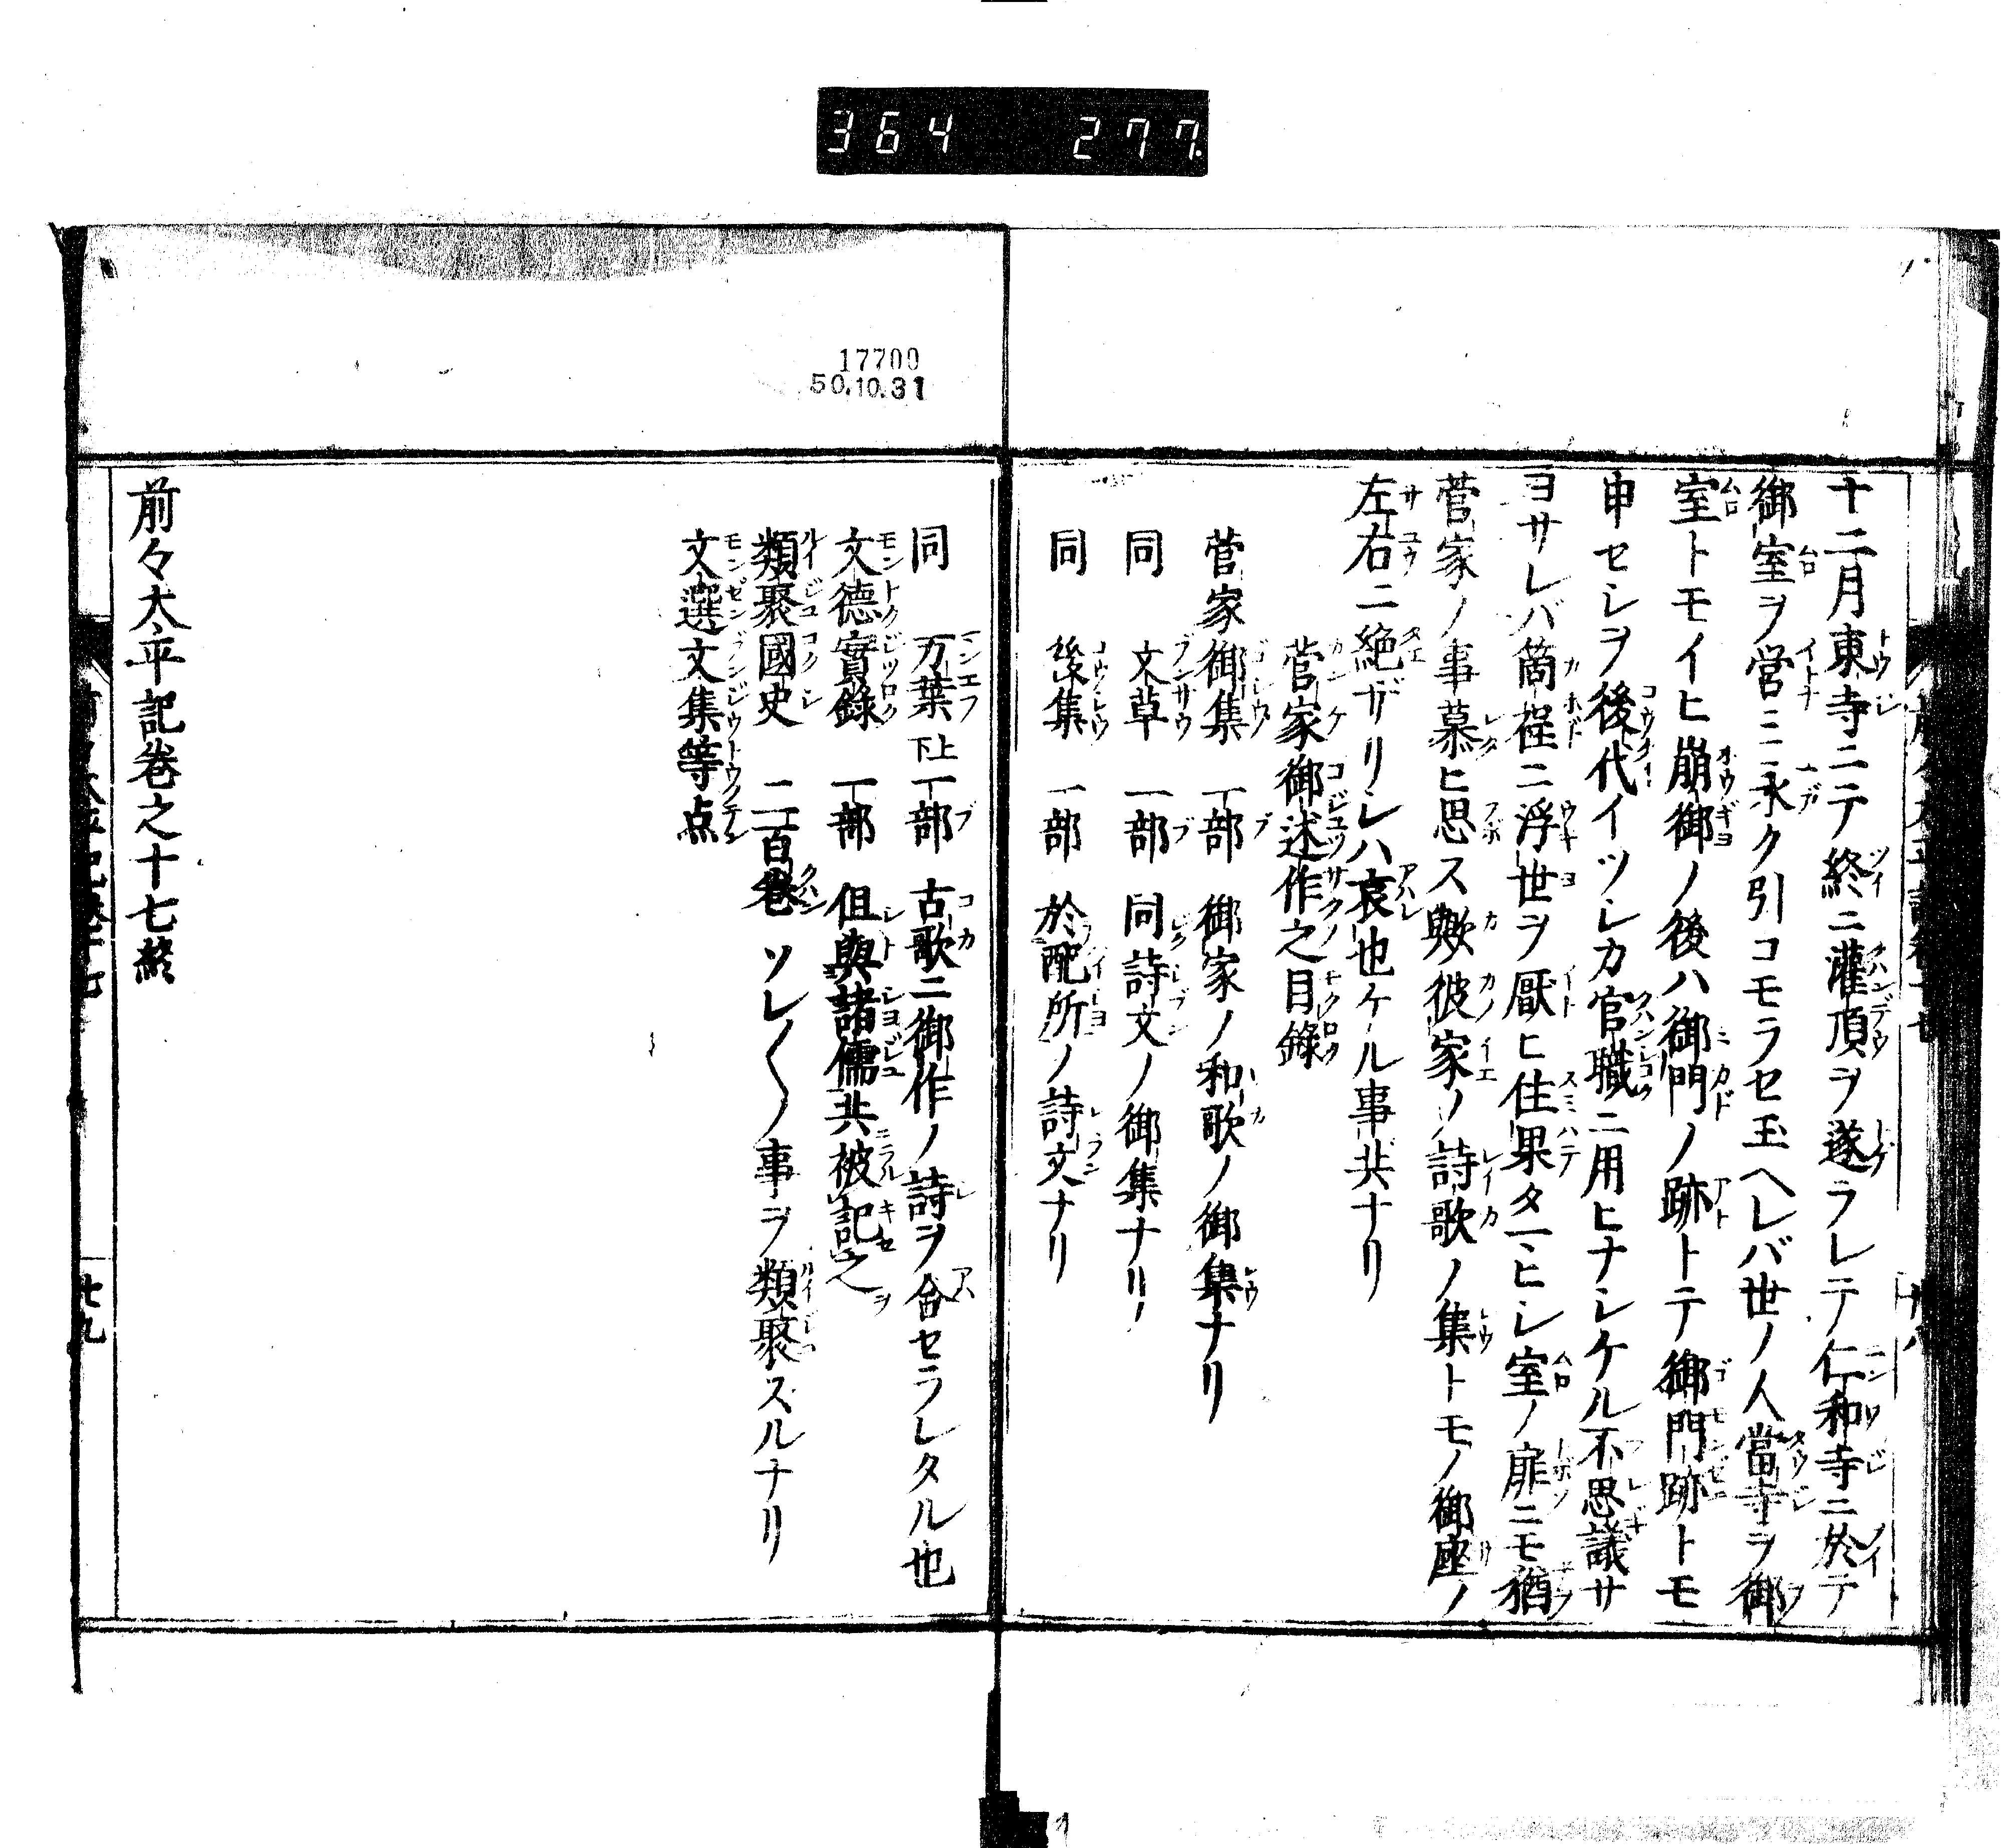 364 277
17700
50.10.31
十二月東寺ニテ終ニ灌頂ヲ遂ラレテ仁和寺ニ於テ
御室ヲ営ミ永ク引コモラセ玉ヘレバ世ノ人當寺ヲ御
室トモイヒ崩御ノ後ハ御門ノ跡トテ御門跡トモ
申セシヲ後代イツシカ官職ニ用ヒナシケル不思議サ
ヨサレバ箇程ニ浮世ヲ厭ヒ住果タマヒシ室ノ扉ニモ猶
菅家ノ事慕ヒ思ス歟彼家ノ詩歌ノ集トモノ御座ノ
左右ニ絶ザリシハ哀也ケル事共ナリ
菅家御述作之目錄
菅家御集 一部 御家ノ和歌ノ御集ナリ
同 文草 一部 同詩文ノ御集ナリ
同 後集 一部 於配所ノ詩文ナリ
同 万葉上下 一部 古歌ニ御作ノ詩ヲ合セラレタル也
文德實錄 一部 但與諸儒共被記之
類聚國史 二百卷 ソレ〱ノ事ヲ類聚スルナリ
文選文集等点
前々太平記卷之十七終
廿九